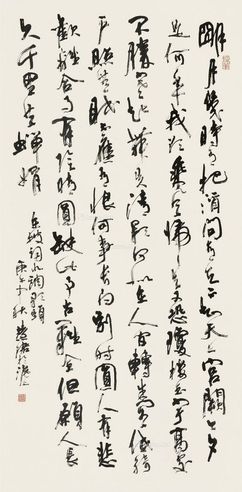 明月幾時有把酒問青天不知天上宮闕今夕
是何年我欲乘風歸去又恐瓊樓玉宇高處
不勝寒起舞弄清影何似在人間轉朱閣低綺
戶照無眠不應有恨何事長向別時圓人有悲
歡離合月有陰晴圓缺此事古難全但願人長
久千里共嬋娟
東坡詞水調歌頭